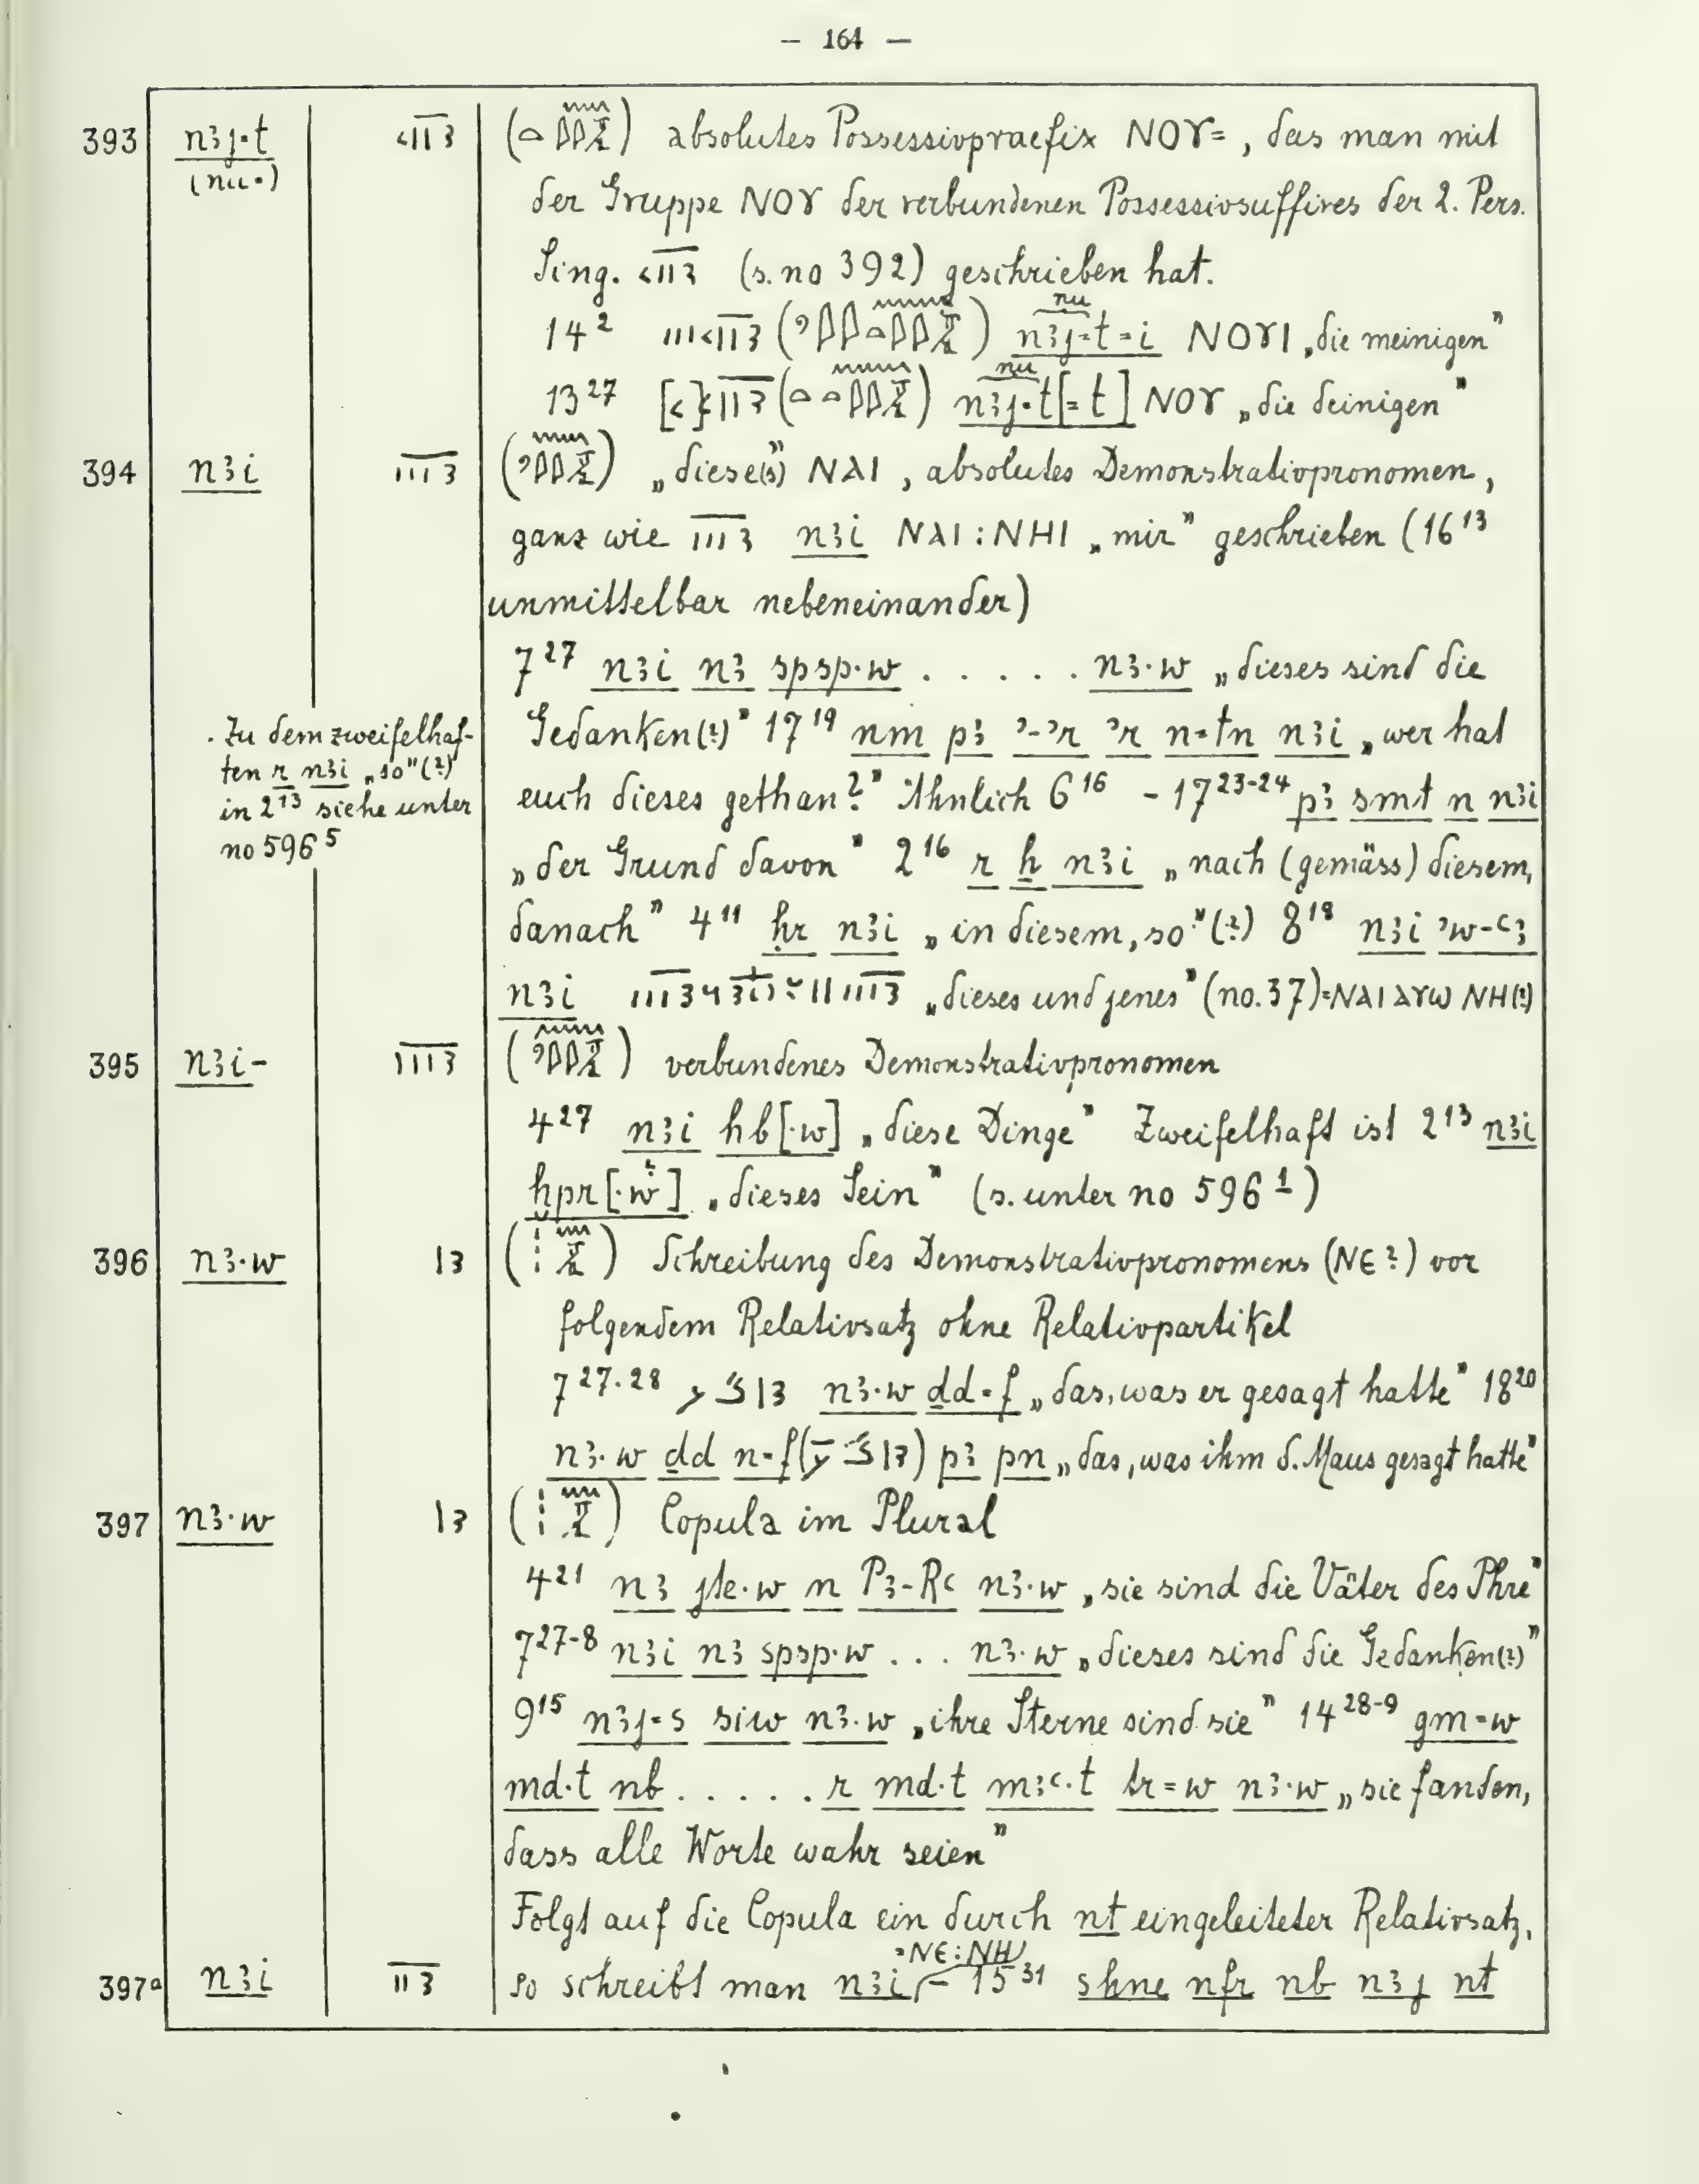 — 164 —
393 nꜣj·t (nu·) absolutes Possessivpraefix ⲚⲞⲨ=, das man mit
der Gruppe ⲚⲞⲨ der verbundenen Possessivsuffixes der 2. Pers.
Sing. (s. no 392) geschrieben hat.
14² nꜣj·t=i nu ⲚⲞⲨⲒ „die meinigen"
13²⁷ nꜣj·t[=t] nu ⲚⲞⲨ „die deinigen"
394 nꜣi „diese(s)" ⲚⲀⲒ, absolutes Demonstrativpronomen,
ganz wie nꜣi ⲚⲀⲒ : ⲚⲎⲒ „mir" geschrieben (16¹³
unmittelbar nebeneinander)
7²⁷ nꜣi nꜣ spsp·w . . . . . nꜣ·w „dieses sind die
Gedanken(?)" 17¹⁹ nm pꜣ ʾ-ʾr ʾr n=tn nꜣi „wer hat
euch dieses gethan?" Ähnlich 6¹⁶ – 17²³⁻²⁴ pꜣ smt n nꜣi
„der Grund davon" 2¹⁶ r ẖ nꜣi „nach (gemäss) diesem,
danach" 4¹¹ ḥr nꜣi „in diesem, so"(?) 8¹⁸ nꜣi ʾw-ꜥꜣ
nꜣi „dieses und jenes" (no. 37) = ⲚⲀⲒ ⲀⲨⲰ ⲚⲎ(?)
. Zu dem zweifelhaf-
ten r nꜣi „so"(?)
in 2¹³ siehe unter
no 596⁵
395 nꜣi- verbundenes Demonstrativpronomen
4²⁷ nꜣi hb[·w] „diese Dinge" Zweifelhaft ist 2¹³ nꜣi
ḫpr[·w?] „dieses Sein" (s. unter no 596¹)
396 nꜣ·w Schreibung des Demonstrativpronomens (ⲚⲈ?) vor
folgendem Relativsatz ohne Relativpartikel
7²⁷·²⁸ nꜣ·w ḏd=f „das, was er gesagt hatte" 18²⁰
nꜣ·w ḏd n=f pꜣ pn „das, was ihm d. Maus gesagt hatte"
397 nꜣ·w Copula im Plural
4²¹ nꜣ jte·w n Pꜣ-Rꜥ nꜣ·w „sie sind die Väter des Phre"
7²⁷⁻⁸ nꜣi nꜣ spsp·w ... nꜣ·w „dieses sind die Gedanken(?)"
9¹⁵ nꜣj=s siw nꜣ·w „ihre Sterne sind sie" 14²⁸⁻⁹ gm=w
md·t nb . . . . . r md·t mꜣꜥ·t tr=w nꜣ·w „sie fanden,
dass alle Worte wahr seien"
Folgt auf die Copula ein durch nt eingeleiteter Relativsatz,
397ᵃ nꜣi so schreibt man nꜣi =ⲚⲈ:ⲚⲎ – 15³¹ sḥne nfr nb nꜣj nt